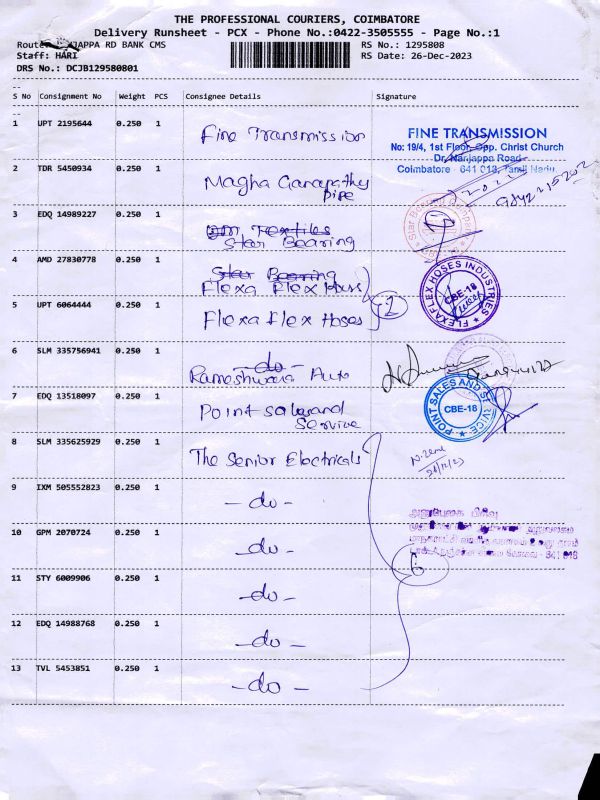 THE PROFESSIONAL COURIERS, COIMBATORE
Delivery Runsheet - PCX - Phone No.:0422-3505555 - Page No.:1
RD BANK CMS
RS No.: 1295808
Staff: HARI
RS Date: 26-Dec-2023
DRS No.: DCJB129580801
S No Consignment No Weight PCS Consignee Details Signature
1 UPT 2195644 0.250 1 Fine Transmission
FINE TRANSMISSION
No: 19/4, 1st Floor, Opp. Christ Church
Dr. Nanjappa Road
Coimbatore - 641 018, Tamil Nadu.
2 TDR 5450934 0.250 1 Magha Ganapathy
pipe
3 EDQ 14989227 0.250 1 Tex​tiles
Star Bearing
4 AMD 27830778 0.250 1 Star Bearing
Flexa Flex
FLEXAFLEX HOSES INDUSTRIES
CBE-18
5 UPT 6064444 0.250 1 Flexa Flex Hoses
2
6 SLM 335756941 0.250 1 -do-
Rameshwara Auto
7 EDQ 13518097 0.250 1 Point sales and
Service
POINT SALES AND SERVICE
CBE-18
8 SLM 335625929 0.250 1 The Senior Electricals
9 IXM 505552823 0.250 1 -do-
10 GPM 2070724 0.250 1 -do-
6
11 STY 6009906 0.250 1 -do-
12 EDQ 14988768 0.250 1 -do-
13 TVL 5453851 0.250 1 -do-